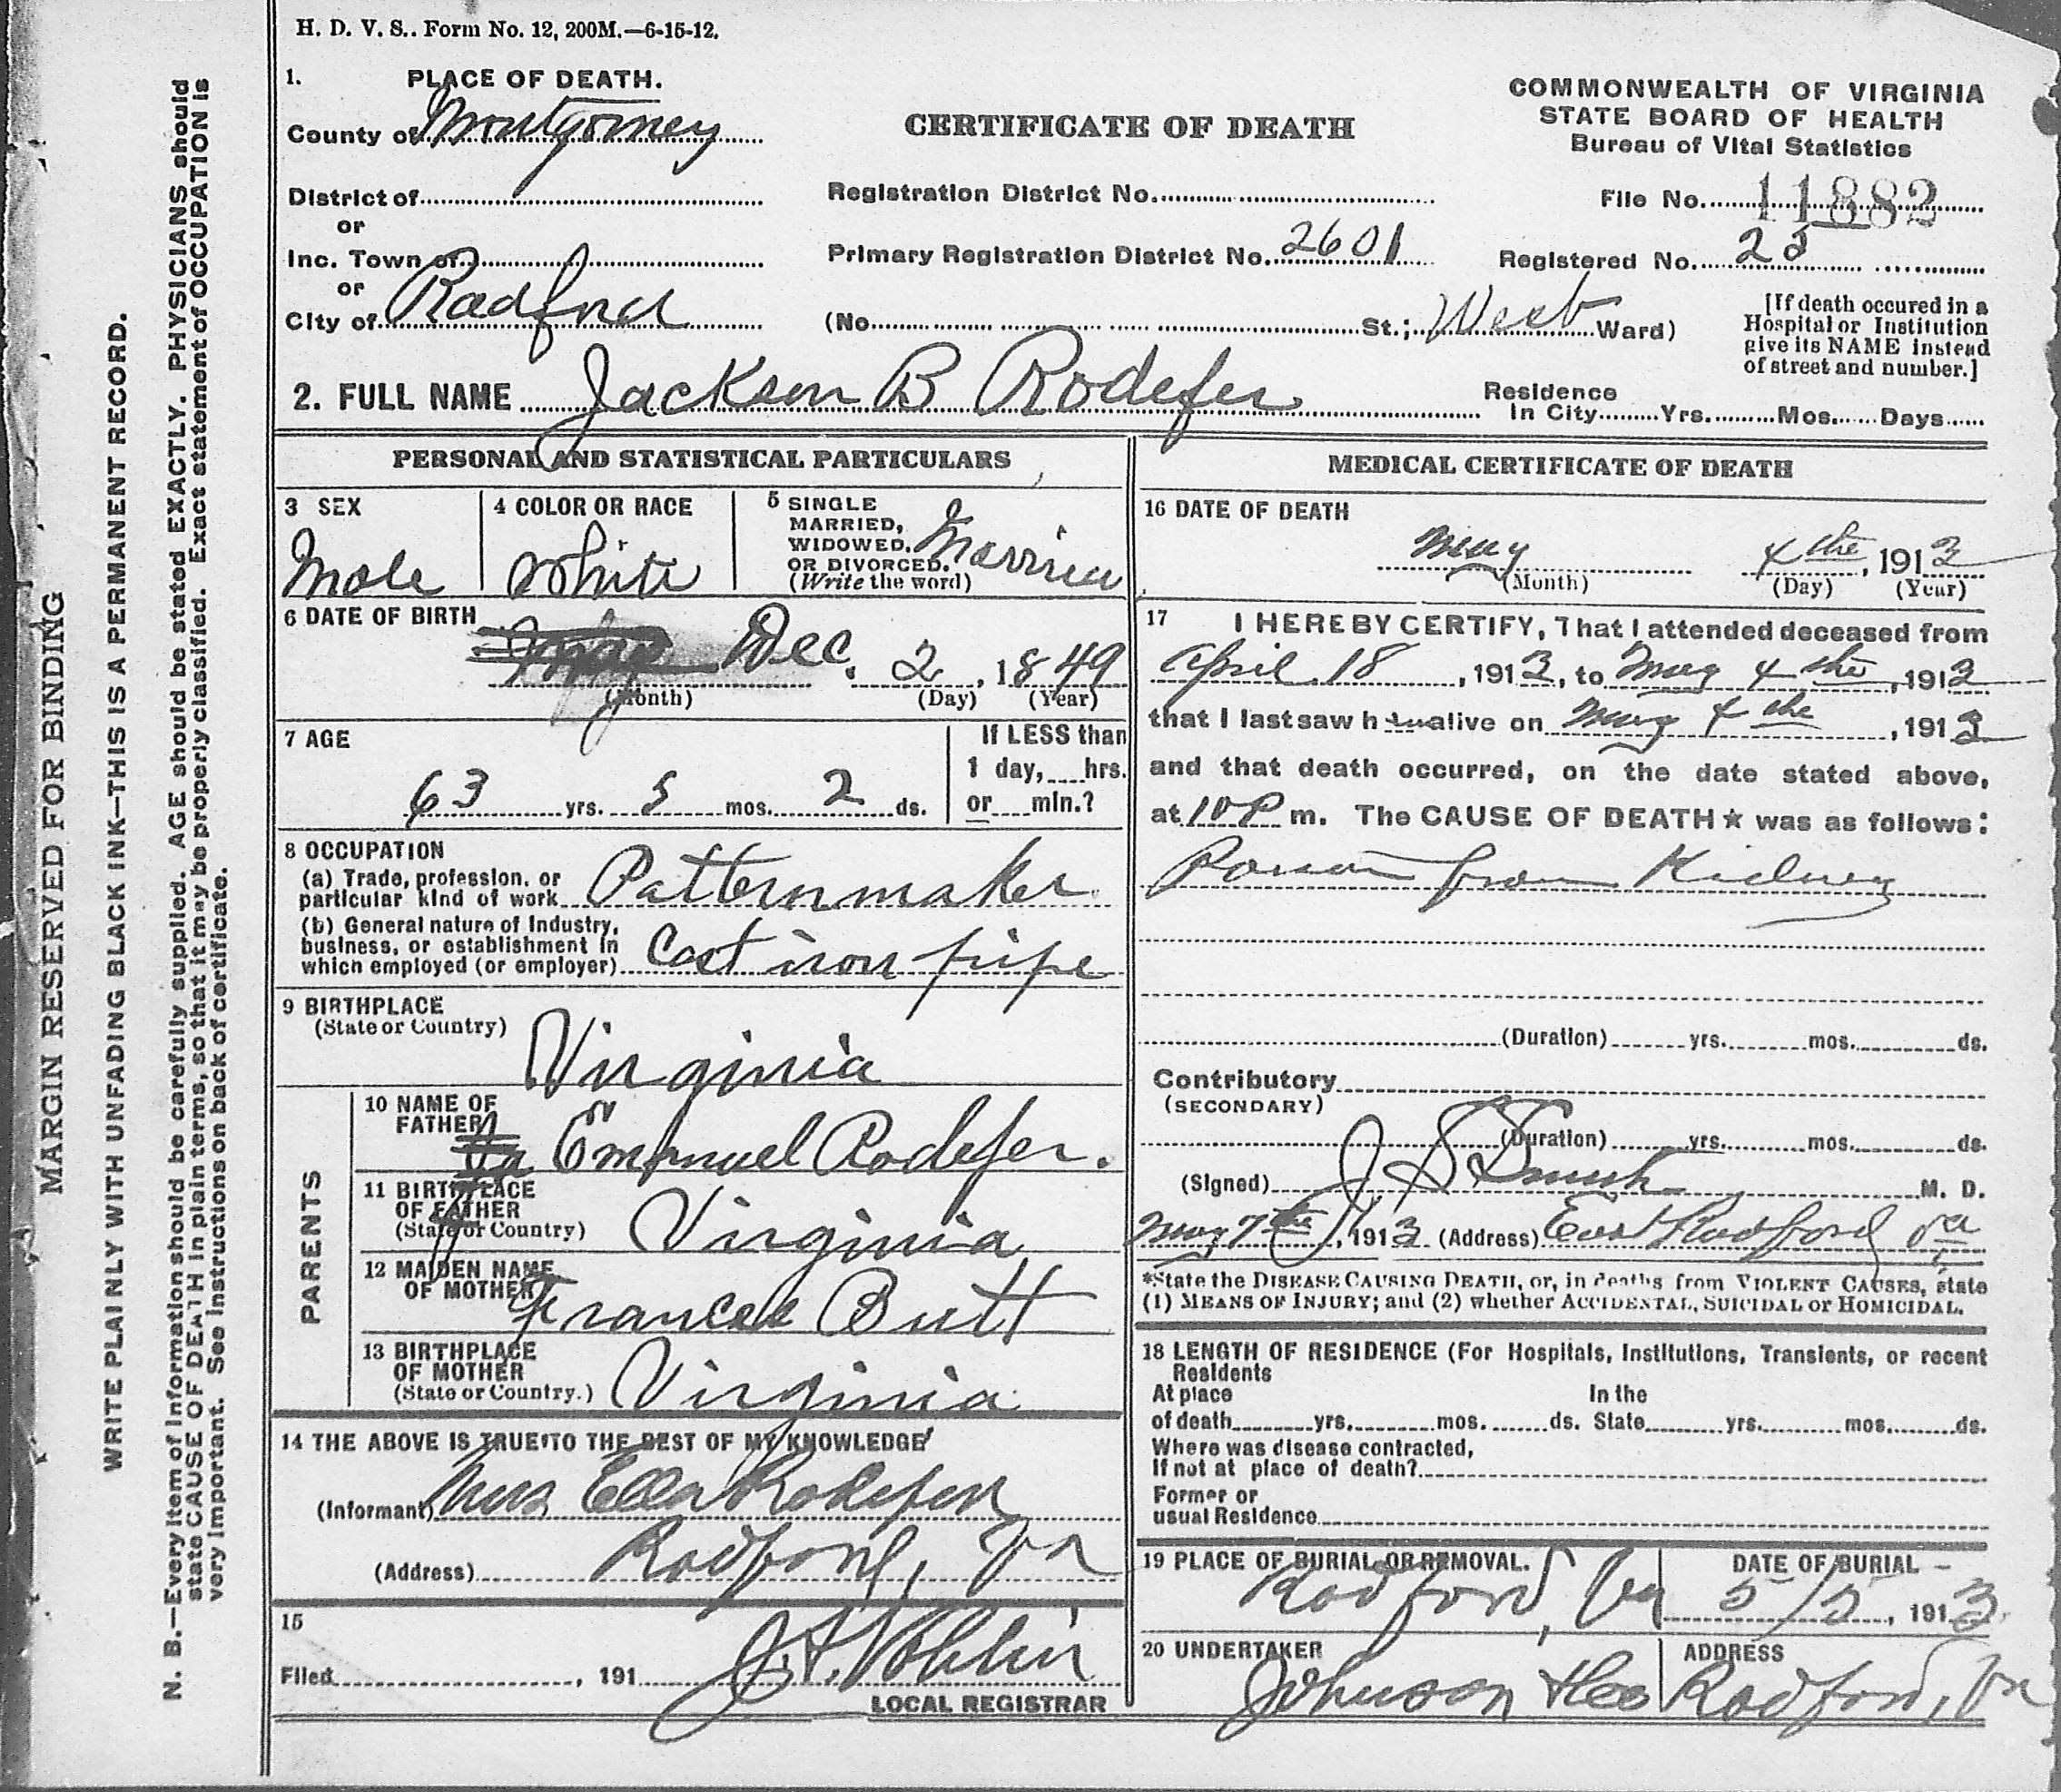 H. D. V. S.. Form No. 12, 200M.—6-15-12.
1. PLACE OF DEATH.
County of Montgomery
District of
or
Inc. Town of
or
City of Radford
CERTIFICATE OF DEATH
Registration District No.
Primary Registration District No. 2601
(No. St.; West Ward)
COMMONWEALTH OF VIRGINIA
STATE BOARD OF HEALTH
Bureau of Vital Statistics
File No. 11882
Registered No. 23
[If death occured in a
Hospital or Institution
give its NAME instead
of street and number.]
2. FULL NAME Jackson B Rodefer
Residence
In City Yrs. Mos. Days
PERSONAL AND STATISTICAL PARTICULARS
3 SEX
Male
4 COLOR OR RACE
White
5 SINGLE
MARRIED,
WIDOWED,
OR DIVORCED.
(Write the word)
Married
6 DATE OF BIRTH
Dec. 2, 1849
(Month) (Day) (Year)
7 AGE
63 yrs. 5 mos. 2 ds.
If LESS than
1 day, hrs.
or min.?
8 OCCUPATION
(a) Trade, profession, or
particular kind of work Patternmaker
(b) General nature of Industry,
business, or establishment in
which employed (or employer) Cast iron pipe
9 BIRTHPLACE
(State or Country)
Virginia
PARENTS
10 NAME OF
FATHER
Emanuel Rodefer.
11 BIRTHPLACE
OF FATHER
(State or Country)
Virginia
12 MAIDEN NAME
OF MOTHER
Frances Butt
13 BIRTHPLACE
OF MOTHER
(State or Country.)
Virginia
14 THE ABOVE IS TRUE TO THE BEST OF MY KNOWLEDGE
(Informant) Mrs Ella Rodefer
(Address) Radford, Va
15
Filed , 191
LOCAL REGISTRAR
MEDICAL CERTIFICATE OF DEATH
16 DATE OF DEATH
May 4the, 1913
(Month) (Day) (Year)
17 I HEREBY CERTIFY, That I attended deceased from
April 18, 1913, to May 4 the, 1913
that I last saw h im alive on May 4 the, 1913
and that death occurred, on the date stated above,
at 10 P m. The CAUSE OF DEATH★ was as follows:
Poison from Kidney
(Duration) yrs. mos. ds.
Contributory
(SECONDARY)
(Duration) yrs. mos. ds.
(Signed) J S Smith M. D.
May 7 the, 1913 (Address) East Radford Va
*State the DISEASE CAUSING DEATH, or, in deaths from VIOLENT CAUSES, state
(1) MEANS OF INJURY; and (2) whether ACCIDENTAL, SUICIDAL or HOMICIDAL.
18 LENGTH OF RESIDENCE (For Hospitals, Institutions, Transients, or recent
Residents
At place In the
of death yrs. mos. ds. State yrs. mos. ds.
Where was disease contracted,
If not at place of death?
Former or
usual Residence
19 PLACE OF BURIAL OR REMOVAL.
Radford, Va
DATE OF BURIAL
5/5, 1913
20 UNDERTAKER
Johnson
ADDRESS
Radford, Va
MARGIN RESERVED FOR BINDING
WRITE PLAINLY WITH UNFADING BLACK INK—THIS IS A PERMANENT RECORD.
N. B.—Every item of information should be carefully supplied. AGE should be stated EXACTLY. PHYSICIANS should
state CAUSE OF DEATH in plain terms, so that it may be properly classified. Exact statement of OCCUPATION is
very important. See instructions on back of certificate.